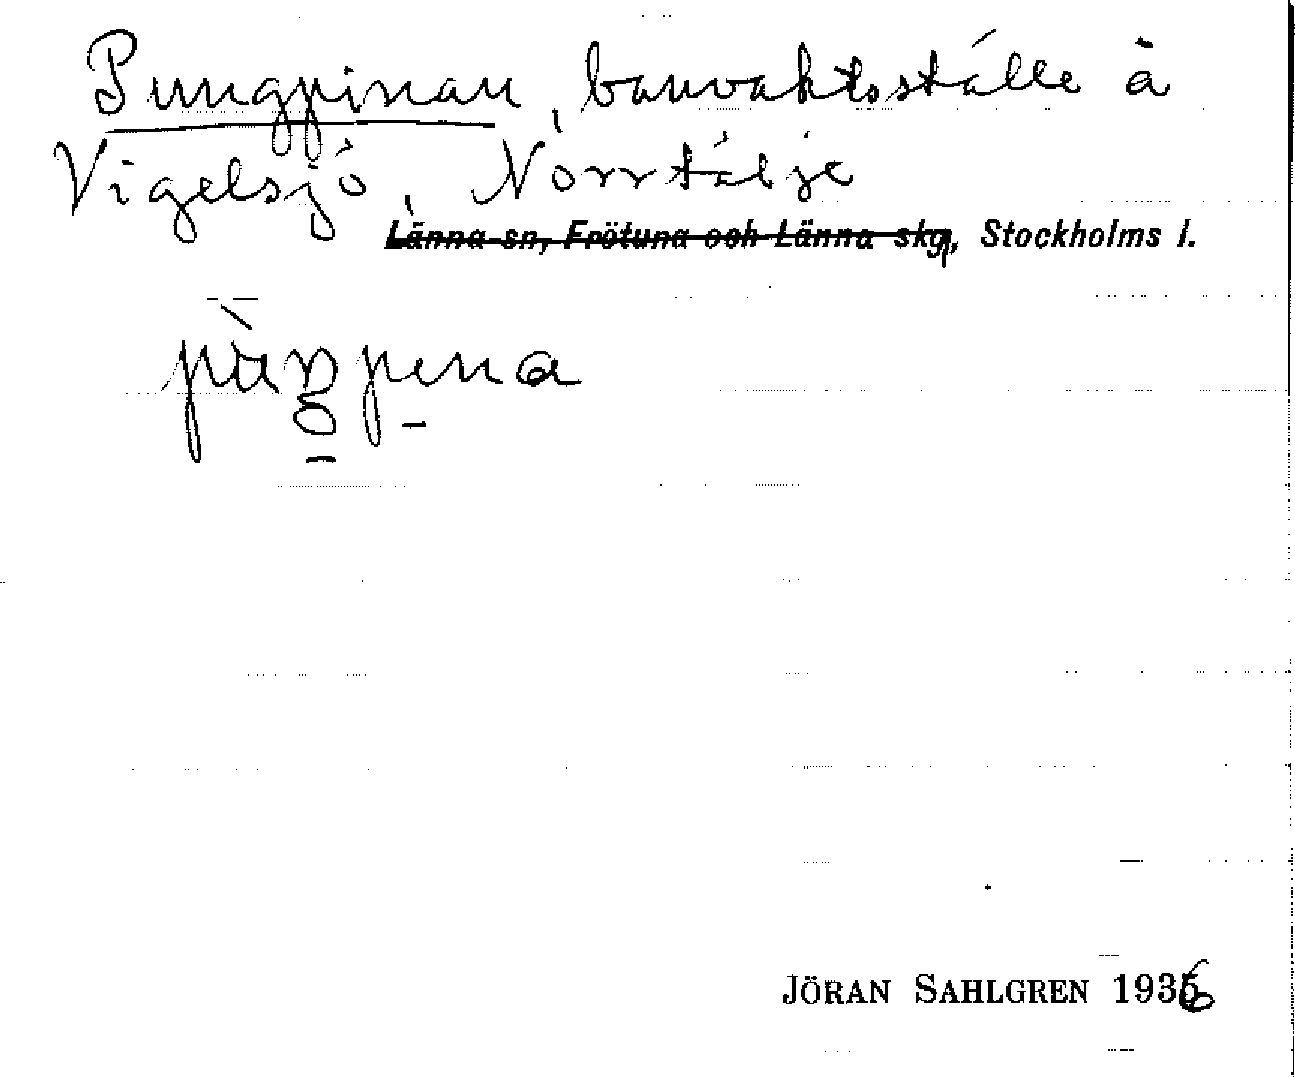 Pungpinan, banvaktsställe å
Vigelsjö, Norrtälje
Länna sn, Frötuna och Länna skg, Stockholms l.
JÖRAN SAHLGREN 1936